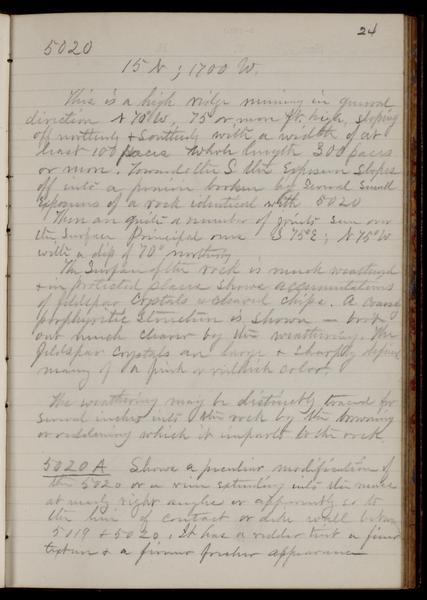 24
5020
15 N ; 1700 W.
This is a high ridge running in general
direction N 70° W, 75 or more ft. high, sloping
off northerly & Southerly with a width of at
least 100 paces whole length 300 paces
or more. Towards the S the Exposure slopes
off into a broken by Several Small
Exposures of a rock identical with 5020
There are quite a number of joints seen over
the surface Principal ones S 75° E ; N 75° W
with a dip of 70° northerly
The Surface of the rock is much weathered
& in protected places shows accumulations
of feldspar Crystals & cleaved chips. A coarse
porphyritic Structure is shown — brot
out much clearer by the weathering. The
feldspar Crystals are large & sharply defined
many of a pink or reddish color.
The weathering may be distinctly traced for
several inches into the rock by the browning
or reddening which it imparts to the rock.
5020 A Shows a peculiar modification of
the 5020 or a vein extending into the mass
at nearly right angles or apparently so to
the line of contact or dike wall between
5019 & 5020. It has a redder tint a finer
texture & a firmer fresher appearance